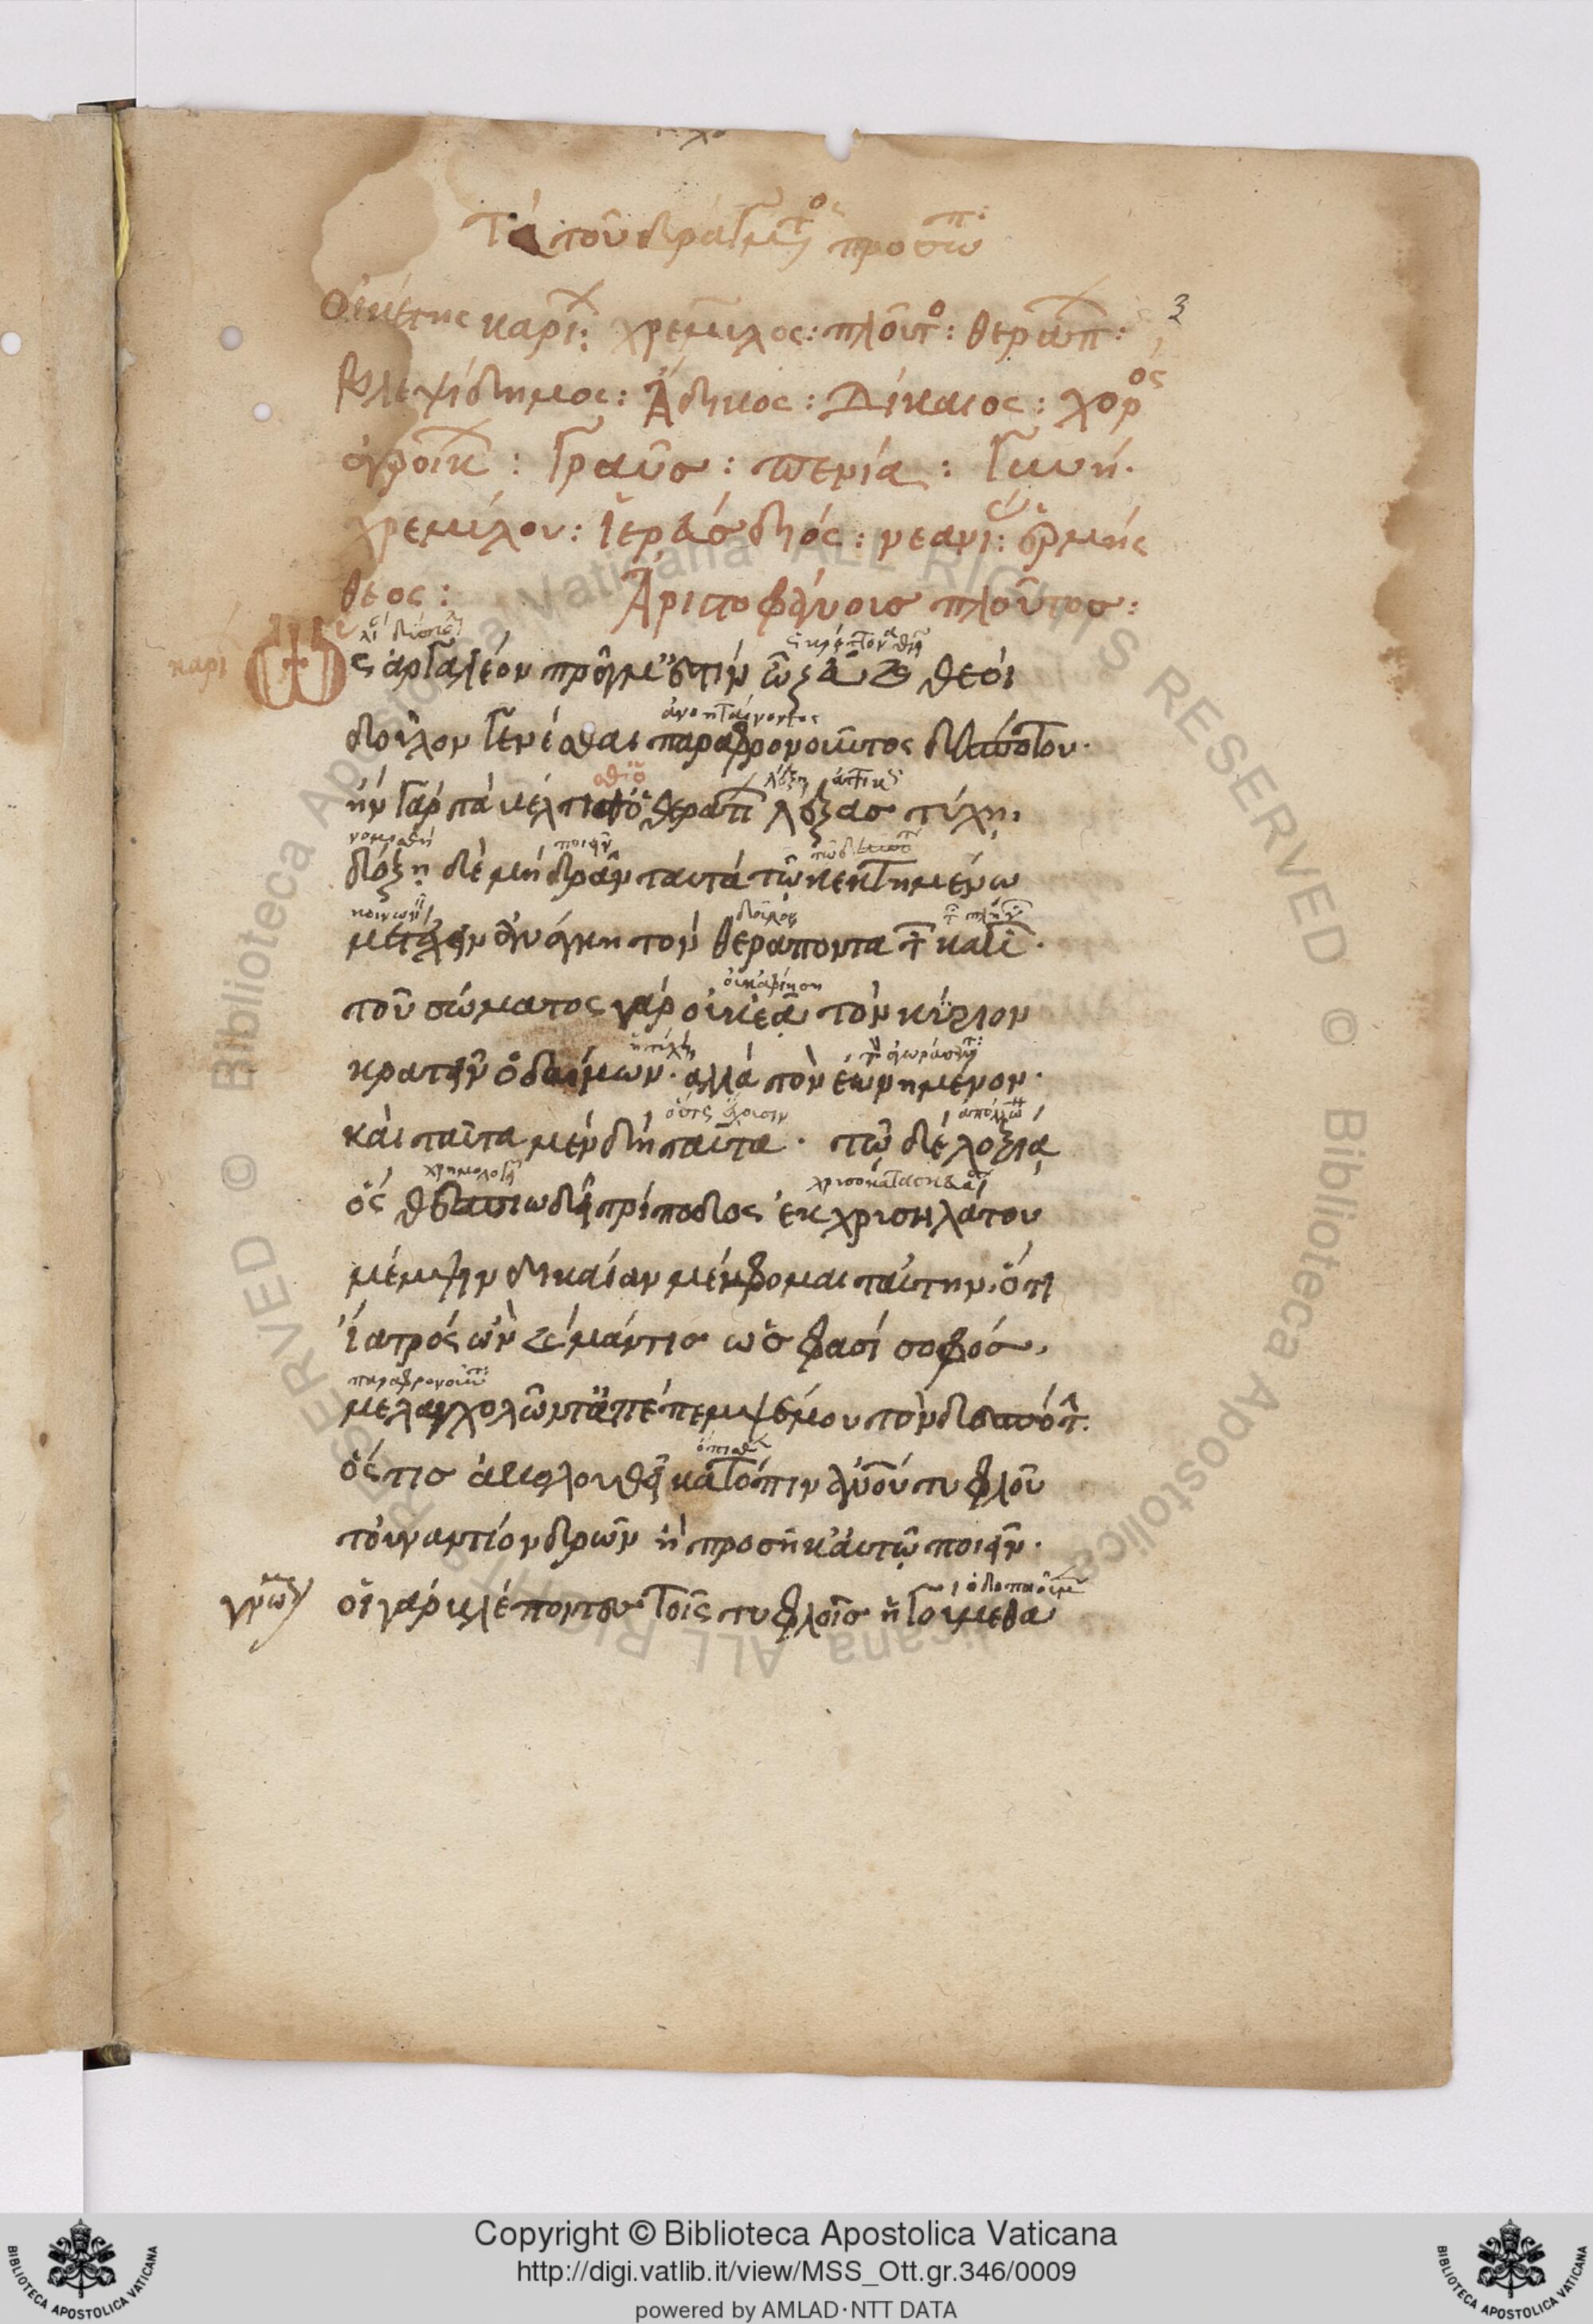 Τὰ τοῦ δράματος προσωπ:
Οἰκέτης καρί: χρεμύλος: πλοῦτο: θεράπ:
3
Βλεψίδημος: Ἄδικος: Δίκαιος: χορός
ἀγροίκ: Γραῦσ: πενία: Γυνή.
χρεμύλου: Ἱερεὺσ διός: νεανί: ἑρμῆς
θεος: Ἀριστοφάνοισ πλοῦτοσ:
καρί
Ὡς ἀργαλέον πρᾶγμ' ἐστὶν ὦ ζεῦ καὶ θεοὶ
δοῦλον γενέσθαι παραφρονοῦντος δεσπότου.
ἢν γὰρ τὰ βέλτισθ' ὁ θεράπ λέξασ τύχῃ,
ποιεῖν
δόξῃ δὲ μὴ δρᾶν ταυτὰ τῷ κεκτημένω
δοῦλον
μετέχειν ἀνάγκη τὸν θεράποντα τ κακ.
τοῦ σώματος γὰρ οὐκ ἐᾶ τὸν κύριον
ἡ τύχη
κρατεῖν ὁ δαίμων. ἀλλὰ τὸν ἐωνημένον.
καὶ ταῦτα μὲν δὴ ταῦτα. τῷ δὲ λοξίᾳ
ὃς θεσπιωδεῖ τρίποδος ἐκ χρισηλάτου
μέμψιν δικαίαν μέμφομαι ταύτην, ὅτι
ἰατρὸς ὢν καὶ μάντισ ὥσ φασὶ σοφόσ,
μελαγχολῶντ' ἀπέπεμψέ μου τὸν δεσπότ.
ὅς τισ ἀκολουθεῖ κατόπιν ἀνου τυφλοῦ
τουναντίον δρῶν ἢ προσῆκ' ἀυτῷ ποιεῖν.
οἱ γὰρ βλέποντεσ τοῖς τυφλοῖσ ἡγούμεθα
Copyright © Biblioteca Apostolica Vaticana
http://digi.vatlib.it/view/MSS_Ott.gr.346/0009
powered by AMLAD·NTT DATA
BIBLIOTECA APOSTOLICA VATICANA
BIBLIOTECA APOSTOLICA VATICANA
© Biblioteca Apostolica Vaticana ALL RIGHTS RESERVED © Biblioteca Apostolica Vaticana ALL RIGHTS RESERVED